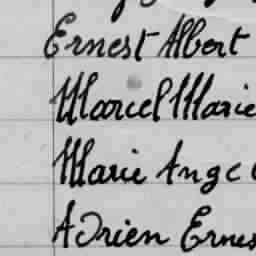 Ernest Albert
Marcel Marie
Marie Ange
Adrien Ernes